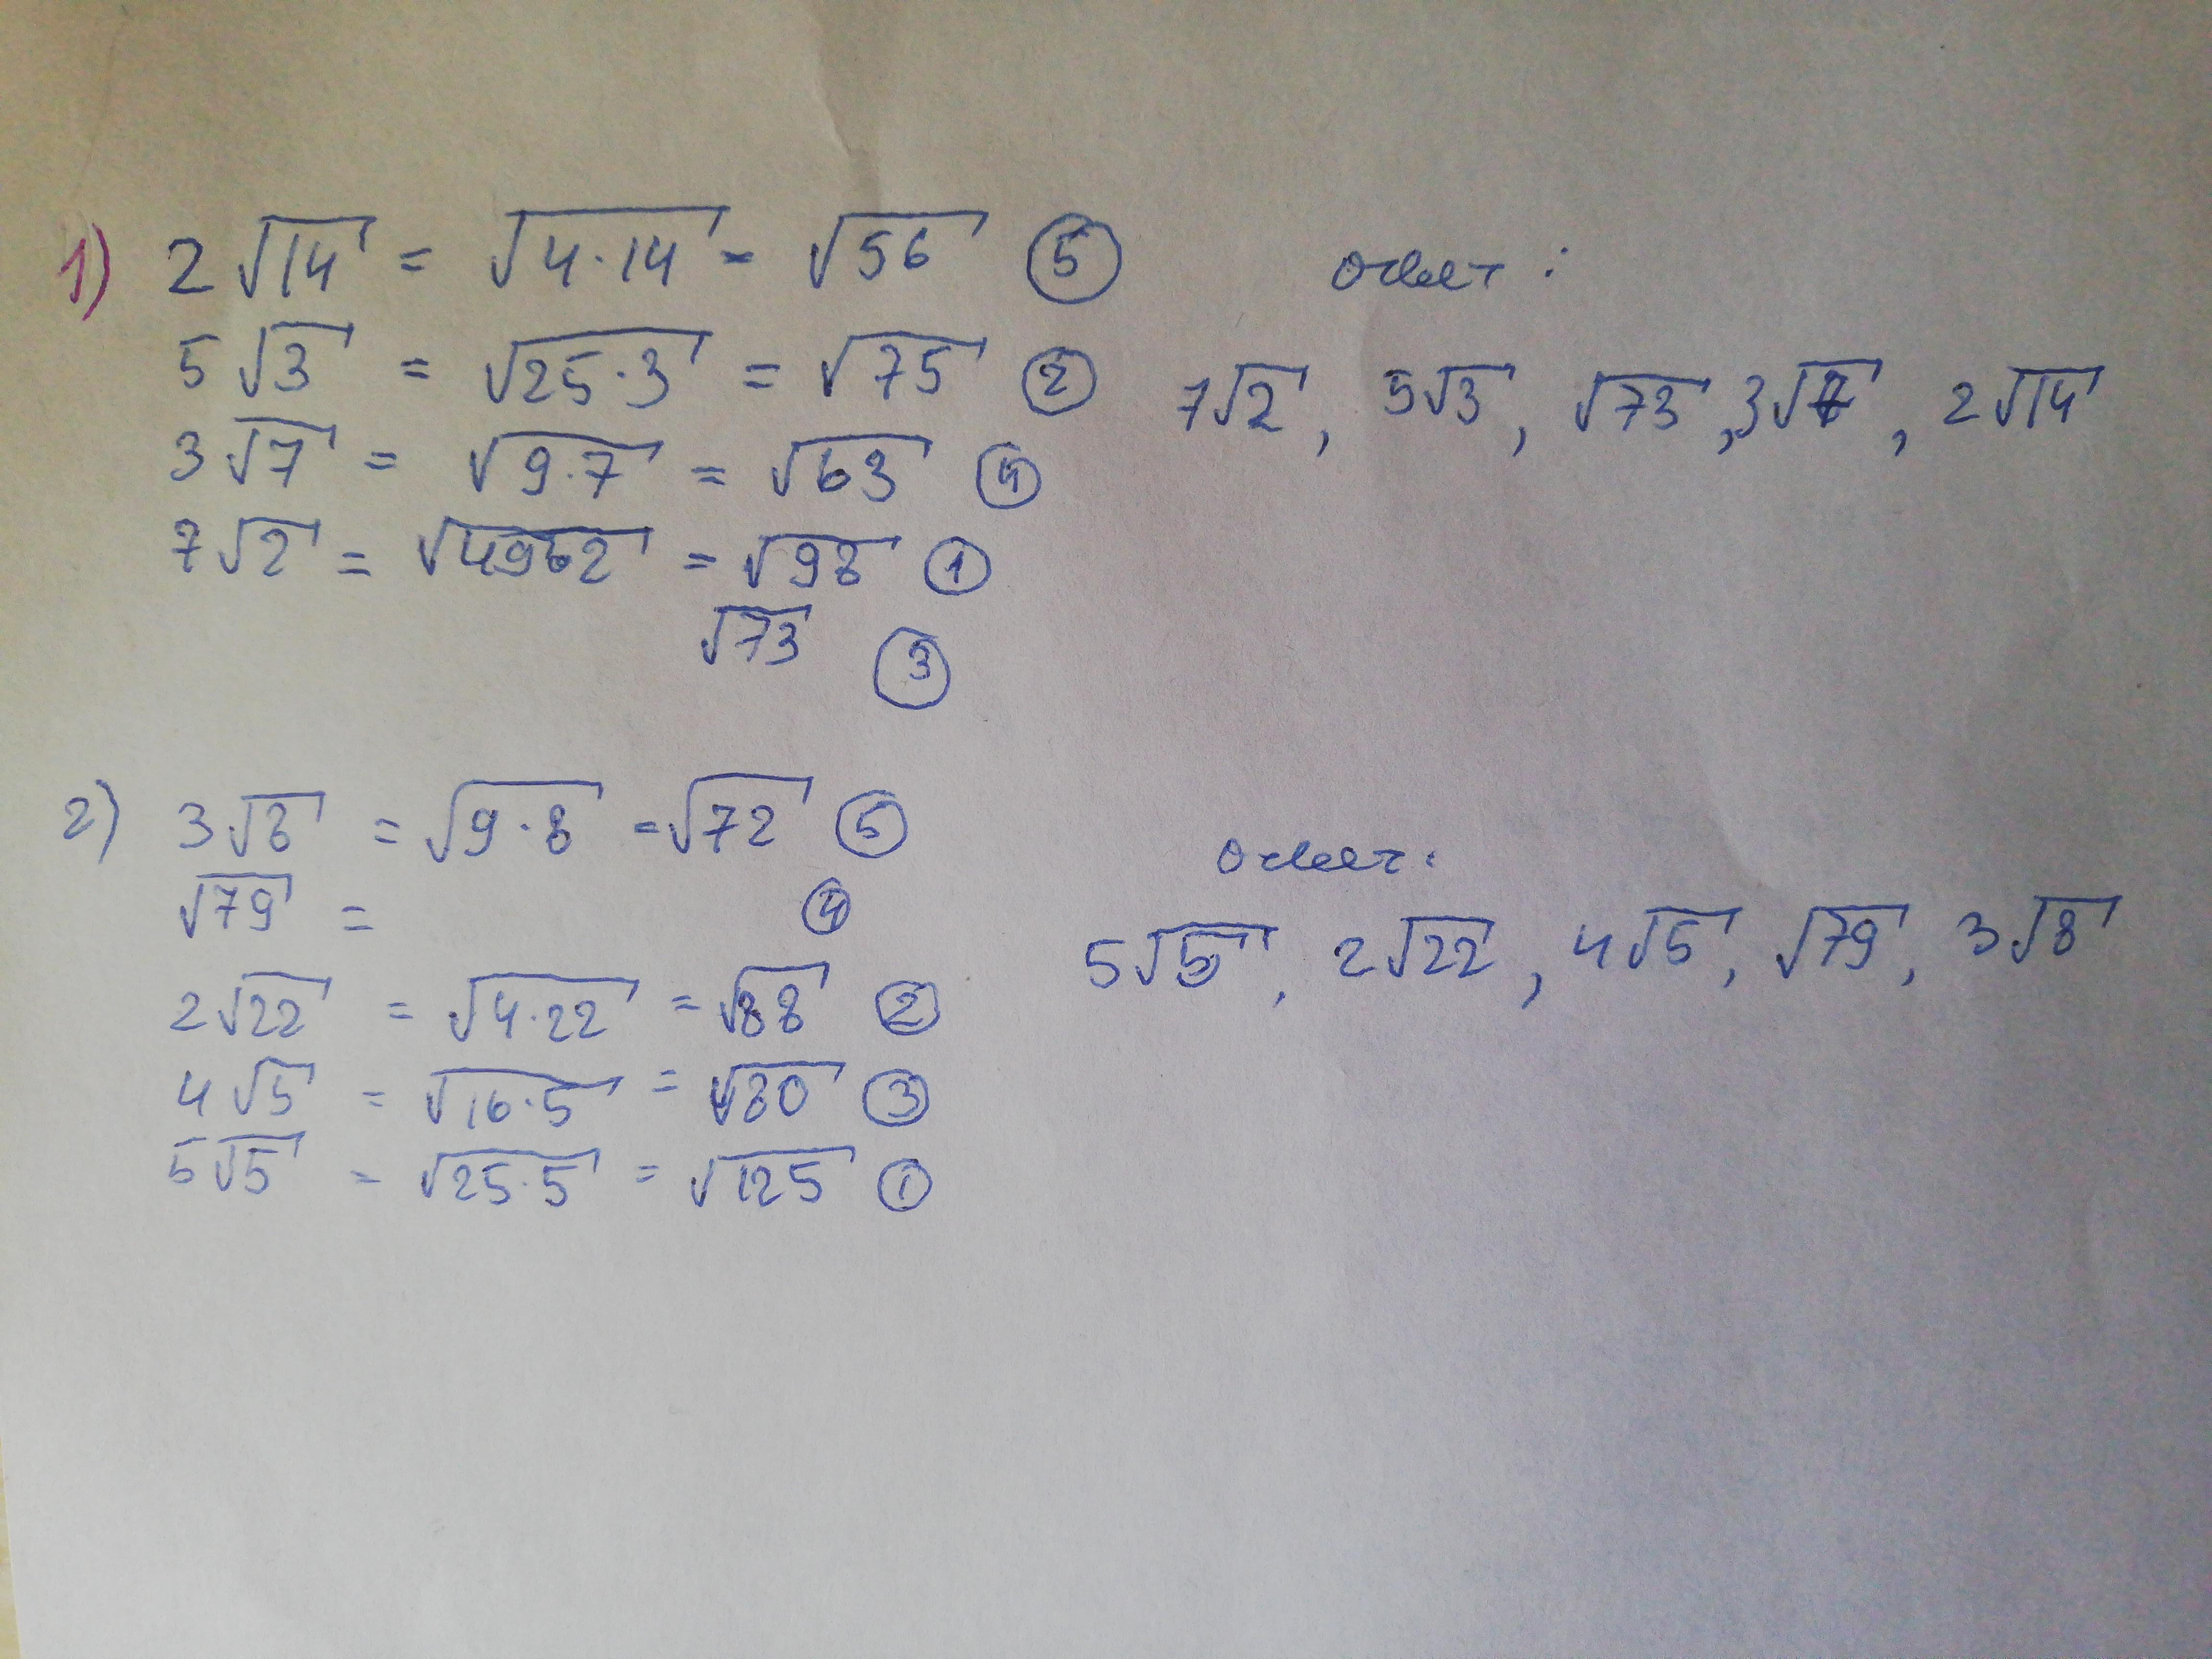 1) 2√14 = √4·14 = √56 ⑤
5√3 = √25·3 = √75 ②
3√7 = √9·7 = √63 ④
7√2 = √49·2 = √98 ①
√73 ③
Ответ:
7√2, 5√3, √73, 3√7, 2√14
2) 3√8 = √9·8 = √72 ⑤
√79 = ④
2√22 = √4·22 = √88 ②
4√5 = √16·5 = √80 ③
5√5 = √25·5 = √125 ①
Ответ:
5√5, 2√22, 4√5, √79, 3√8